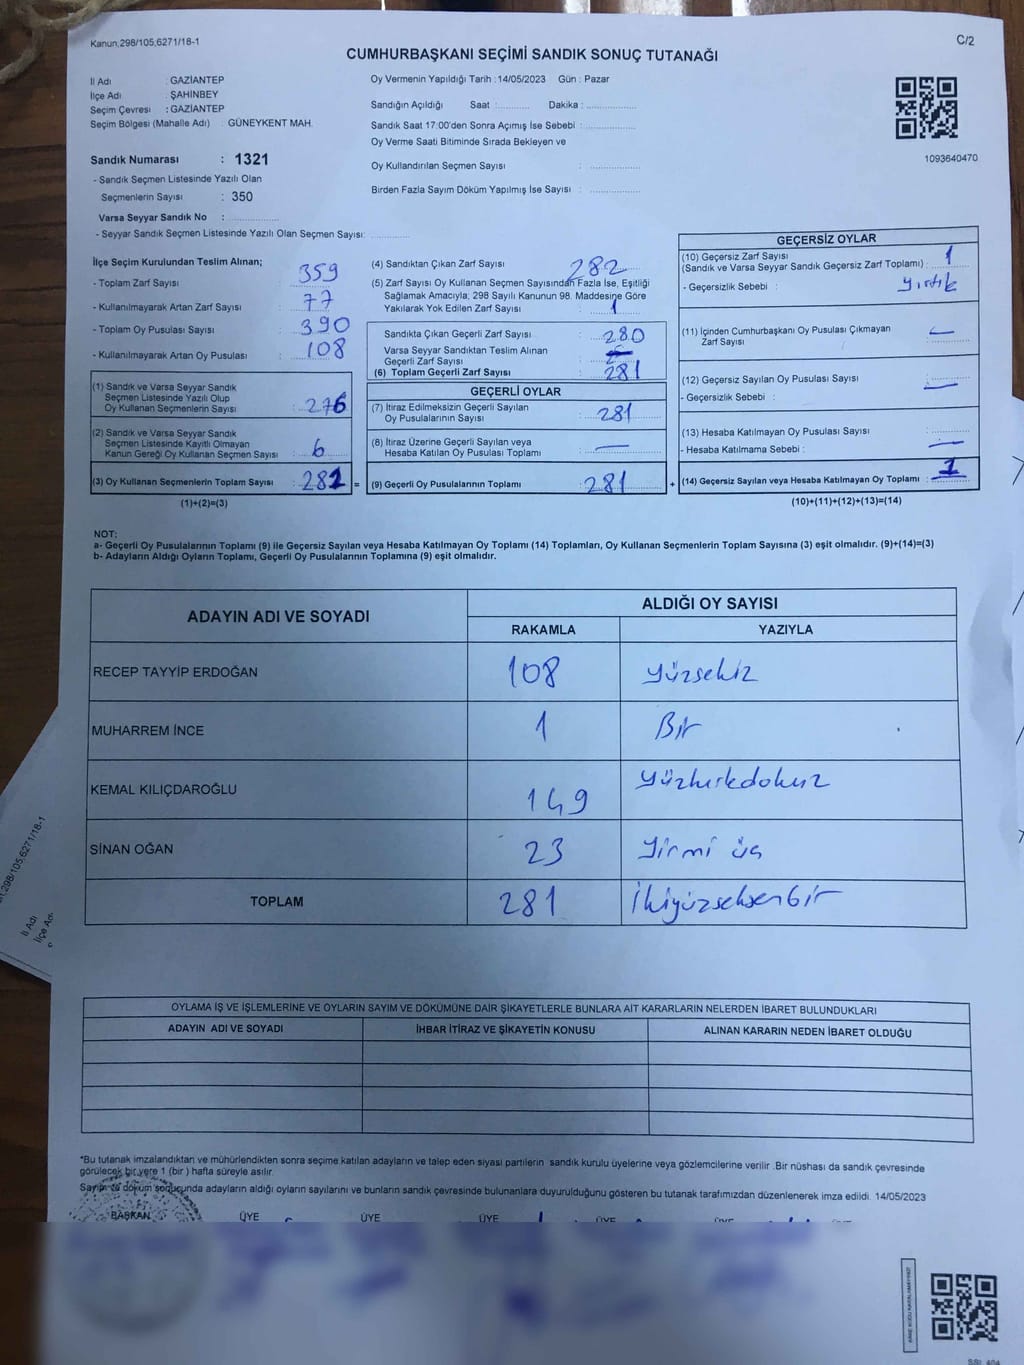 Kanun,298/105,6271/18-1
C/2
CUMHURBAŞKANI SEÇİMİ SANDIK SONUÇ TUTANAĞI
İl Adı : GAZİANTEP
İlçe Adı : ŞAHİNBEY
Seçim Çevresi : GAZİANTEP
Seçim Bölgesi (Mahalle Adı) : GÜNEYKENT MAH.
Sandık Numarası : 1321
- Sandık Seçmen Listesinde Yazılı Olan
Seçmenlerin Sayısı : 350
Varsa Seyyar Sandık No :
- Seyyar Sandık Seçmen Listesinde Yazılı Olan Seçmen Sayısı:
Oy Vermenin Yapıldığı Tarih :14/05/2023 Gün : Pazar
Sandığın Açıldığı Saat : Dakika :
Sandık Saat 17:00'den Sonra Açımış İse Sebebi :
Oy Verme Saati Bitiminde Sırada Bekleyen ve
Oy Kullandırılan Seçmen Sayısı :
Birden Fazla Sayım Döküm Yapılmış İse Sayısı :
1093640470
İlçe Seçim Kurulundan Teslim Alınan;
- Toplam Zarf Sayısı : 359
- Kullanılmayarak Artan Zarf Sayısı : 77
- Toplam Oy Pusulası Sayısı : 390
- Kullanılmayarak Artan Oy Pusulası : 108
(1) Sandık ve Varsa Seyyar Sandık
Seçmen Listesinde Yazılı Olup
Oy Kullanan Seçmenlerin Sayısı : 276
(2) Sandık ve Varsa Seyyar Sandık
Seçmen Listesinde Kayıtlı Olmayan
Kanun Gereği Oy Kullanan Seçmen Sayısı : 6
(3) Oy Kullanan Seçmenlerin Toplam Sayısı : 282 =
(1)+(2)=(3)
(4) Sandıktan Çıkan Zarf Sayısı : 282
(5) Zarf Sayısı Oy Kullanan Seçmen Sayısından Fazla İse, Eşitliği
Sağlamak Amacıyla; 298 Sayılı Kanunun 98. Maddesine Göre
Yakılarak Yok Edilen Zarf Sayısı : 1
Sandıkta Çıkan Geçerli Zarf Sayısı : 280
Varsa Seyyar Sandıktan Teslim Alınan
Geçerli Zarf Sayısı :
(6) Toplam Geçerli Zarf Sayısı : 281
GEÇERLİ OYLAR
(7) İtiraz Edilmeksizin Geçerli Sayılan
Oy Pusulalarının Sayısı : 281
(8) İtiraz Üzerine Geçerli Sayılan veya
Hesaba Katılan Oy Pusulası Toplamı : —
(9) Geçerli Oy Pusulalarının Toplamı : 281 +
GEÇERSİZ OYLAR
(10) Geçersiz Zarf Sayısı
(Sandık ve Varsa Seyyar Sandık Geçersiz Zarf Toplamı) : 1
- Geçersizlik Sebebi : yırtık
(11) İçinden Cumhurbaşkanı Oy Pusulası Çıkmayan
Zarf Sayısı : —
(12) Geçersiz Sayılan Oy Pusulası Sayısı : —
- Geçersizlik Sebebi :
(13) Hesaba Katılmayan Oy Pusulası Sayısı :
- Hesaba Katılmama Sebebi : —
(14) Geçersiz Sayılan veya Hesaba Katılmayan Oy Toplamı : 1
(10)+(11)+(12)+(13)=(14)
NOT:
a- Geçerli Oy Pusulalarının Toplamı (9) ile Geçersiz Sayılan veya Hesaba Katılmayan Oy Toplamı (14) Toplamları, Oy Kullanan Seçmenlerin Toplam Sayısına (3) eşit olmalıdır. (9)+(14)=(3)
b- Adayların Aldığı Oyların Toplamı, Geçerli Oy Pusulalarının Toplamına (9) eşit olmalıdır.
ADAYIN ADI VE SOYADI
ALDIĞI OY SAYISI
RAKAMLA YAZIYLA
RECEP TAYYİP ERDOĞAN 108 yüzsekiz
MUHARREM İNCE 1 Bir
KEMAL KILIÇDAROĞLU 149 yüzkırkdokuz
SİNAN OĞAN 23 yirmi üç
TOPLAM 281 ikiyüzseksenbir
OYLAMA İŞ VE İŞLEMLERİNE VE OYLARIN SAYIM VE DÖKÜMÜNE DAİR ŞİKAYETLERLE BUNLARA AİT KARARLARIN NELERDEN İBARET BULUNDUKLARI
ADAYIN ADI VE SOYADI İHBAR İTİRAZ VE ŞİKAYETİN KONUSU ALINAN KARARIN NEDEN İBARET OLDUĞU
*Bu tutanak imzalandıktan ve mühürlendikten sonra seçime katılan adayların ve talep eden siyasi partilerin sandık kurulu üyelerine veya gözlemcilerine verilir .Bir nüshası da sandık çevresinde
görülecek bir yere 1 (bir ) hafta süreyle asılır.
Sayım ve döküm sonucunda adayların aldığı oyların sayılarını ve bunların sandık çevresinde bulunanlara duyurulduğunu gösteren bu tutanak tarafımızdan düzenlenerek imza edildi. 14/05/2023
BAŞKAN ÜYE ÜYE ÜYE ÜYE ÜYE ÜYE
298/105,6271/18-1
İl Adı
İlçe Ad